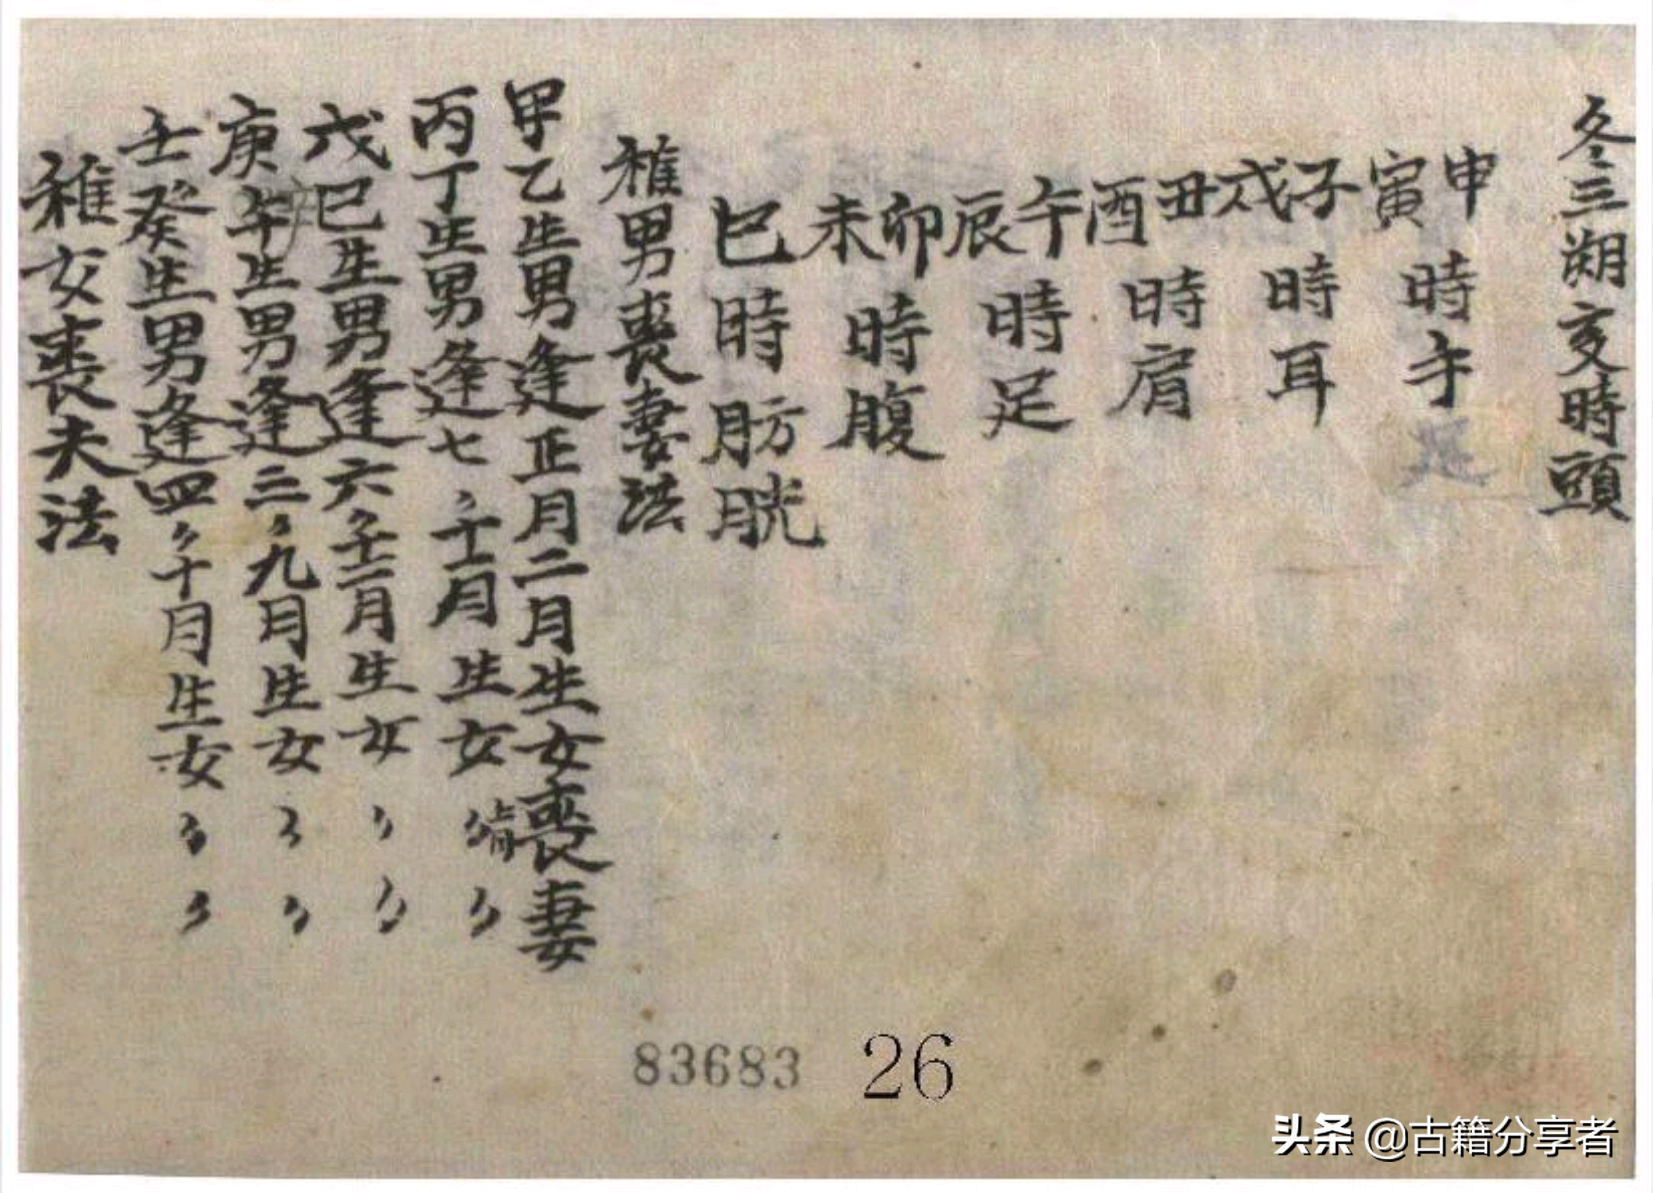 冬三朔亥時頭
申寅時手
子戌時耳
丑酉時肩
午辰時足
卯未時腹
巳時肪胱
稚男喪妻法
甲乙生男逢正月二月生女喪妻
丙丁生男逢七々十一月生女々々
戊巳生男逢六々十二月生女々々
庚辛生男逢三々九月生女々々
壬癸生男逢四々十月生女々々
稚女喪夫法
83683
26
头条 @古籍分享者